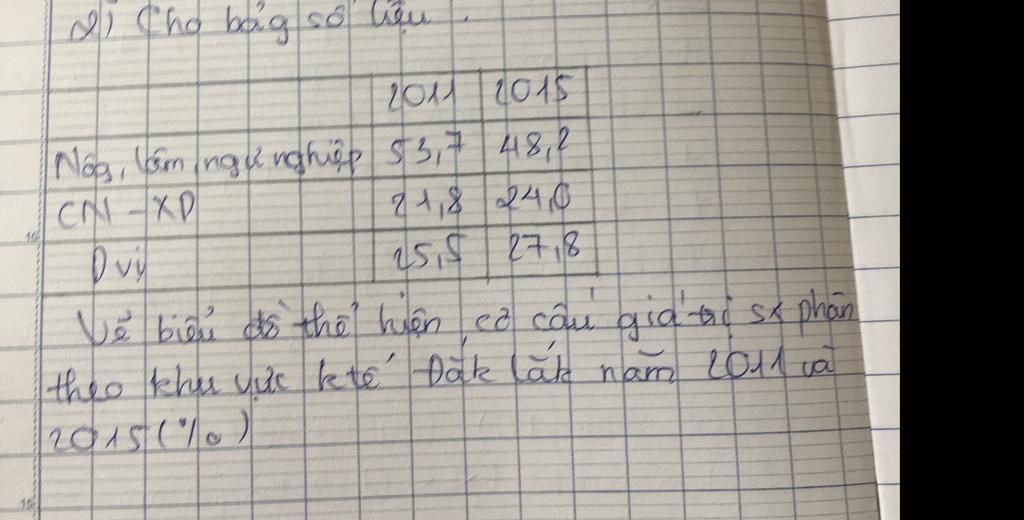 2) Cho bảg số liệu.
2011 2015
Nôg, lâm, ngư nghiệp 53,7 48,2
CN - XD 21,8 24,0
Dvụ 25,5 27,8
Vẽ biểu đồ thể hiện cơ cấu giá trị sx phân
theo khu vực ktế Đắk Lắk năm 2011 và
2015 (%)
10
15